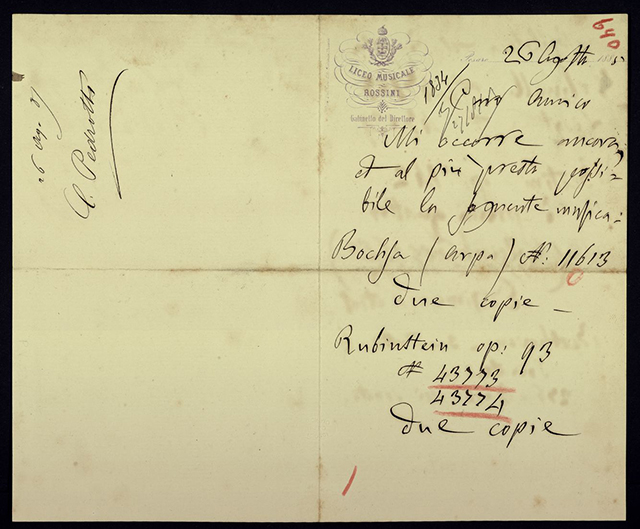 640
LICEO MUSICALE
ROSSINI
Gabinetto del Direttore
26 Agosto
1834
Caro Amico
Mi occorre ancora,
et al più presto possi-
bile la seguente musica:
Bochsa (arpa) N: 11613
due copie -
Rubinstein op: 93
N 43773
43774
due copie
26 Ag. 87
C. Pedrotti